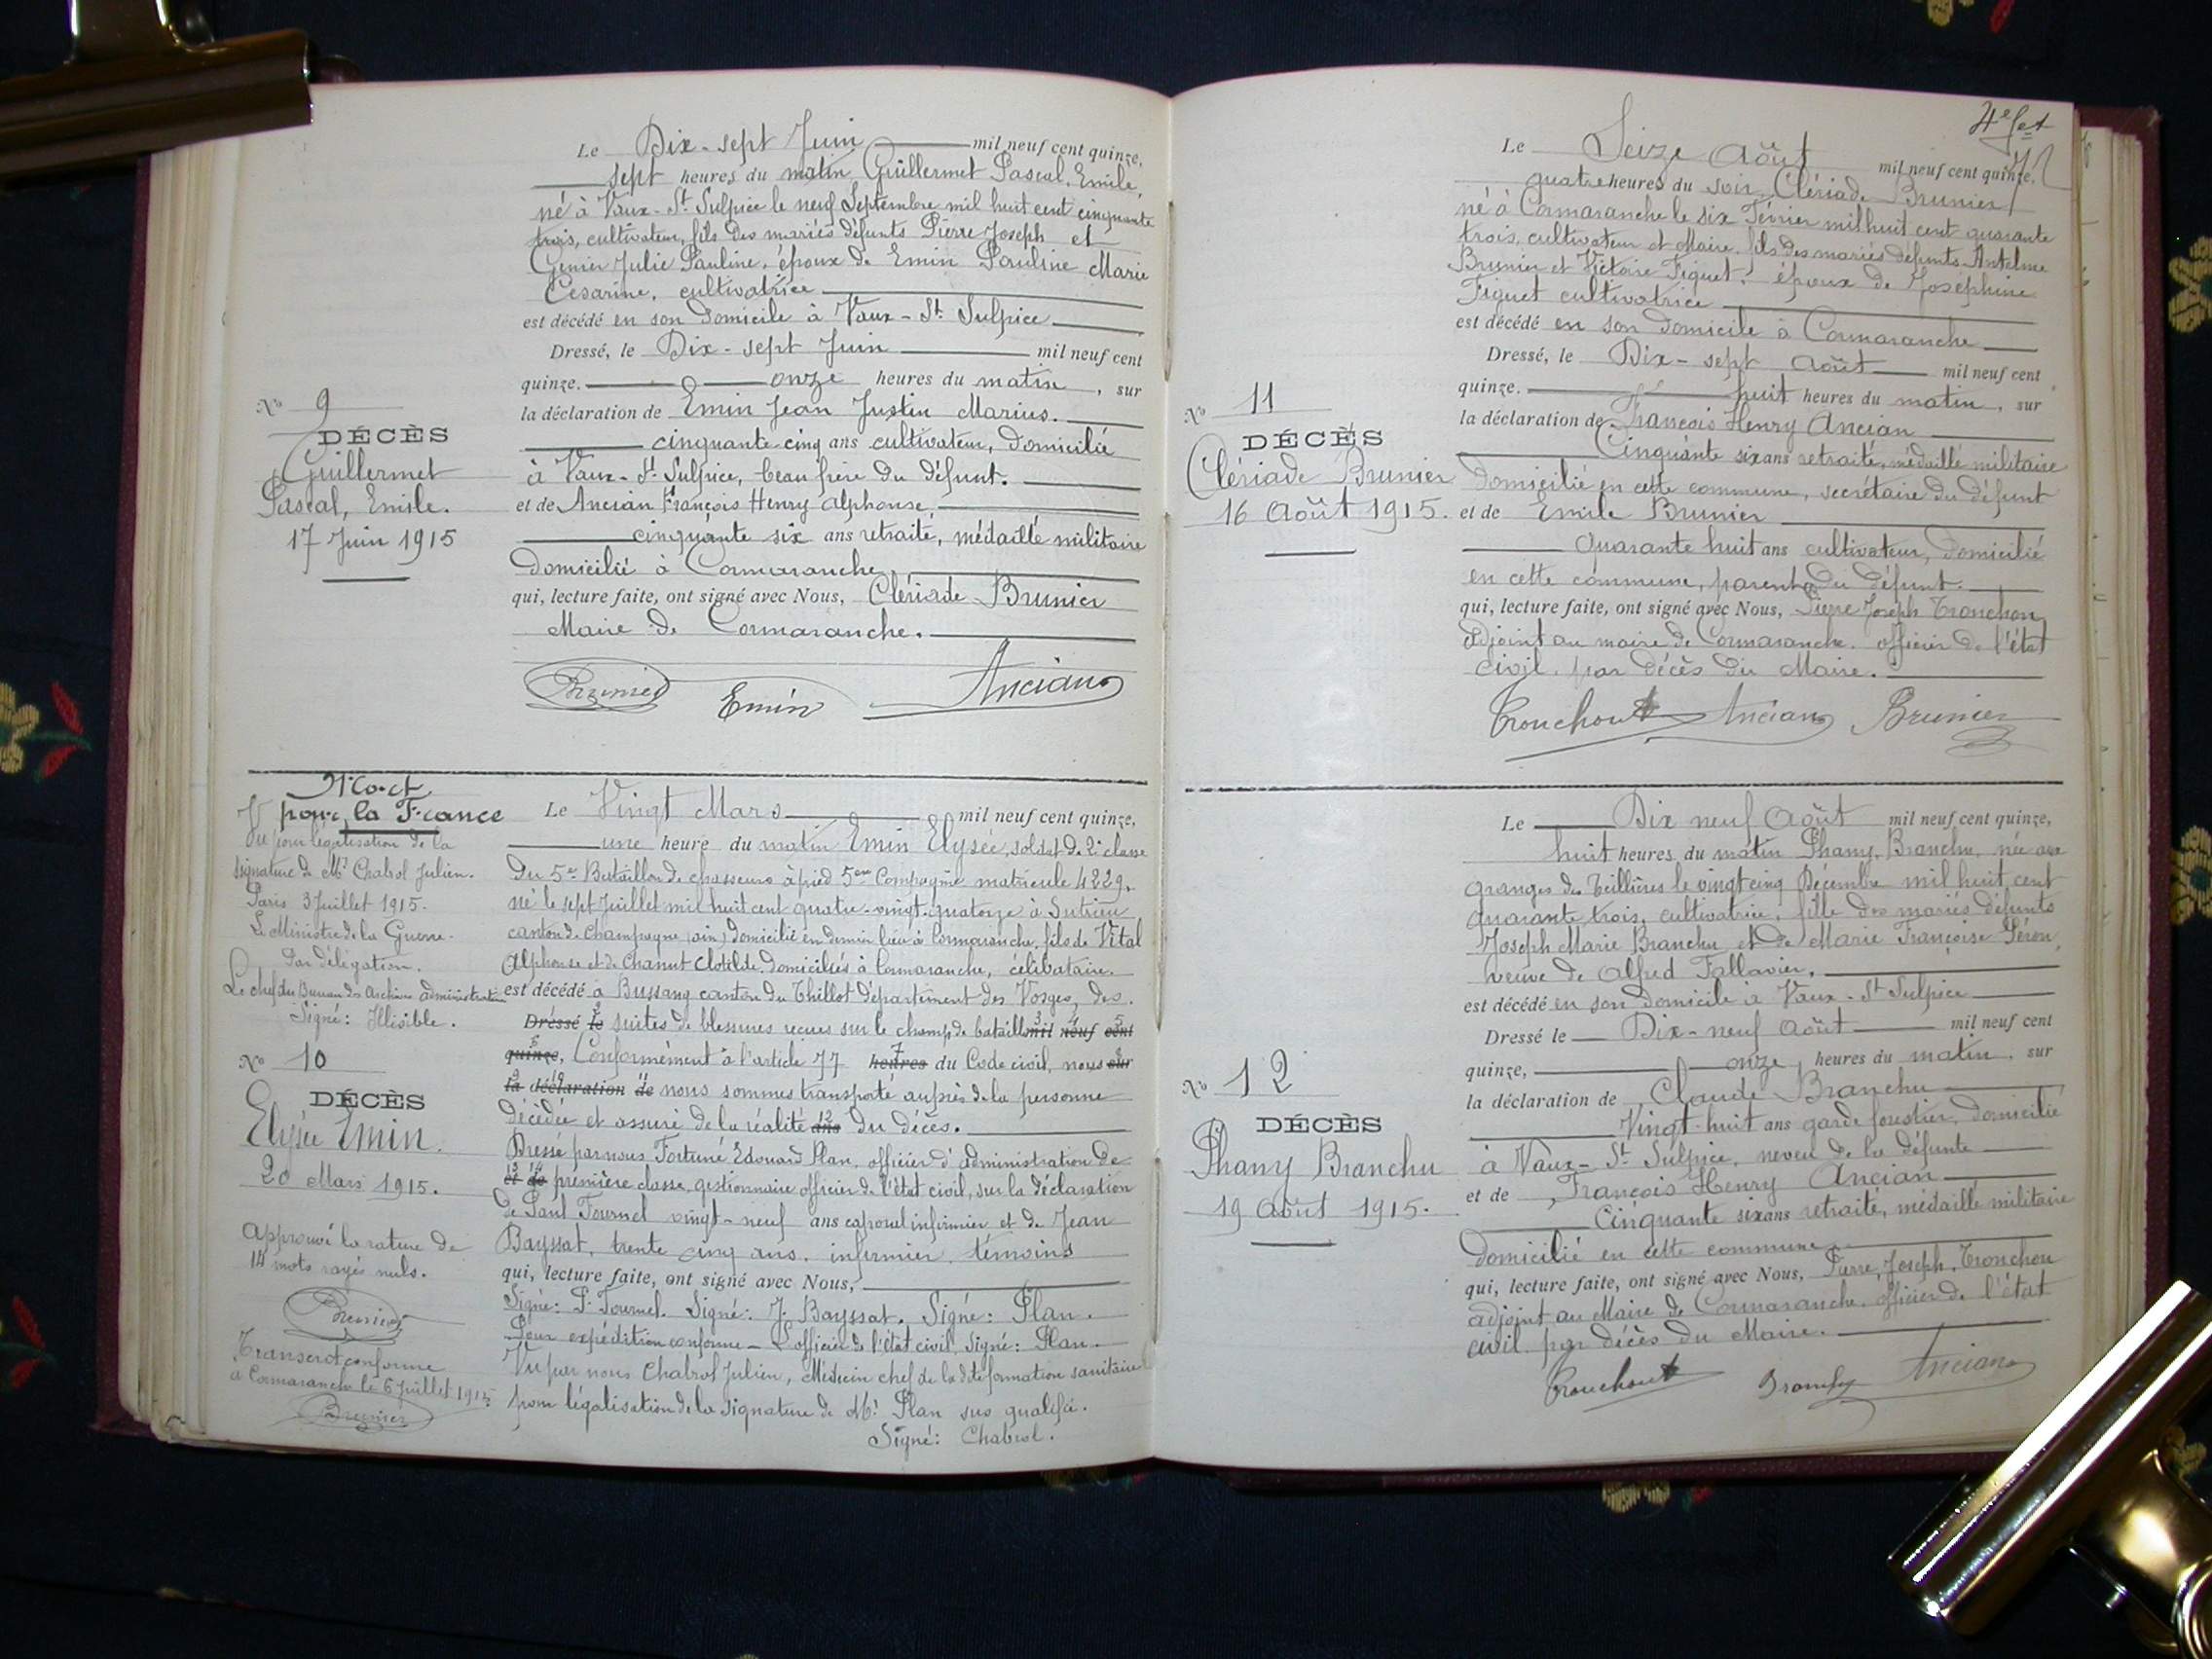 Le Dix-sept Juin mil neuf cent quinze,
sept heures du matin, Guillermet Pascal, Emile,
né à Vaux-St Sulpice le neuf Septembre mil huit cent cinquante
trois, cultivateur, fils des mariés défunts Pierre Joseph et
Genin Julie Pauline, époux de Emin Pauline Marie
Césarine, cultivatrice
est décédé en son domicile à Vaux-St Sulpice
Dressé, le Dix-sept Juin mil neuf cent
quinze. onze heures du matin, sur
la déclaration de Emin Jean Justin Marius.
cinquante-cinq ans cultivateur, domicilié
à Vaux-St Sulpice, beau frère du défunt.
et de Ancian François Henry Alphonse,
cinquante six ans retraité, médaillé militaire
domicilié à Cormaranche,
qui, lecture faite, ont signé avec Nous, Clériade Brunier
Maire de Cormaranche.
Brunier Emin Ancian
No 9
DÉCÈS
Guillermet
Pascal, Emile.
17 Juin 1915
Mort
pour la France
Vu pour légalisation de la
signature de Mr Chabrol Julien.
Paris 3 Juillet 1915.
Le Ministre de la Guerre.
Par délégation.
Le chef du Bureau des Archives administratives
Signé: Illisible.
No 10
DÉCÈS
Elysée Emin.
20 Mars 1915.
Approuvé la rature de
14 mots rayés nuls.
Brunier
Transcrit conforme
à Cormaranche le 6 Juillet 1915
Brunier
Le Vingt Mars mil neuf cent quinze,
une heure du matin Emin Elysée, soldat de 2e classe
du 5e Bataillon de chasseurs à pied 5eme Compagnie matricule 4829.
né le sept Juillet mil huit cent quatre-vingt-quatorze à Sutrieu
canton de Champagne (ain) domicilié en dernier lieu à Cormaranche, fils de Vital
Alphonse et de Chanut Clotilde domiciliés à Cormaranche, célibataire.
est décédé à Bussang canton du Thillot département des Vosges, des.
Dressé le suites de blessures reçues sur le champ de bataille mil neuf cent
quinze, Conformément à l'article 77 heures du Code civil, nous sur
la déclaration de nous sommes transporté auprès de la personne
décédée et assuré de la réalité ans du décès.
Dressé par nous Fortuné Edouard Plan, officier d'administration de
et de première classe, gestionnaire officier de l'état civil, sur la déclaration
de Paul Tournel vingt-neuf ans caporal infirmier et de Jean
Bayssat, trente cinq ans. infirmier. témoins
qui, lecture faite, ont signé avec Nous,
Signé: P. Tournel. Signé: J. Bayssat. Signé: Plan.
Pour expédition conforme - L'officier de l'état civil, Signé: Plan.
Vu par nous Chabrol Julien, Médecin chef de la dite formation sanitaire
pour légalisation de la signature de Mr Plan sus qualifié.
Signé: Chabrol.
4e fet
Le Seize Août mil neuf cent quinze,
quatre heures du soir, Clériade Brunier
né à Cormaranche le six Février mil huit cent quarante
trois, cultivateur et Maire, fils des mariés défunts Antelme
Brunier et Victoire Figuet, époux de Joséphine
Figuet cultivatrice
est décédé en son domicile à Cormaranche
Dressé, le Dix-sept Août mil neuf cent
quinze. huit heures du matin, sur
la déclaration de François Henry Ancian
Cinquante six ans retraité, médaillé militaire
domicilié en cette commune, secrétaire du défunt
et de Emile Brunier
Quarante huit ans cultivateur, domicilié
en cette commune, parent du défunt.
qui, lecture faite, ont signé avec Nous, Pierre Joseph Tronchon
adjoint au maire de Cormaranche. officier de l'état
civil. par décès du Maire.
Tronchon Ancian Brunier
No 11
DÉCÈS
Clériade Brunier
16 Août 1915.
Le Dix neuf Août mil neuf cent quinze,
huit heures du matin Phany Branchu, née aux
granges des Teillières le vingt cinq Décembre mil huit cent
quarante trois, cultivatrice, fille des mariés défunts
Joseph Marie Branchu et de Marie Françoise Péron,
veuve de Alfred Fallavier,
est décédé en son domicile à Vaux-St Sulpice
Dressé le Dix-neuf Août mil neuf cent
quinze, onze heures du matin, sur
la déclaration de Claude Branchu
Vingt-huit ans garde forestier, domicilié
à Vaux-St Sulpice, neveu de la défunte
et de François Henry Ancian
Cinquante six ans retraité, médaillé militaire
domicilié en cette commune
qui, lecture faite, ont signé avec Nous, Pierre, Joseph, Tronchon
adjoint au Maire de Cormaranche, officier de l'état
civil par décès du Maire.
Tronchon Branchu Ancian
No 12
DÉCÈS
Phany Branchu
19 Août 1915.